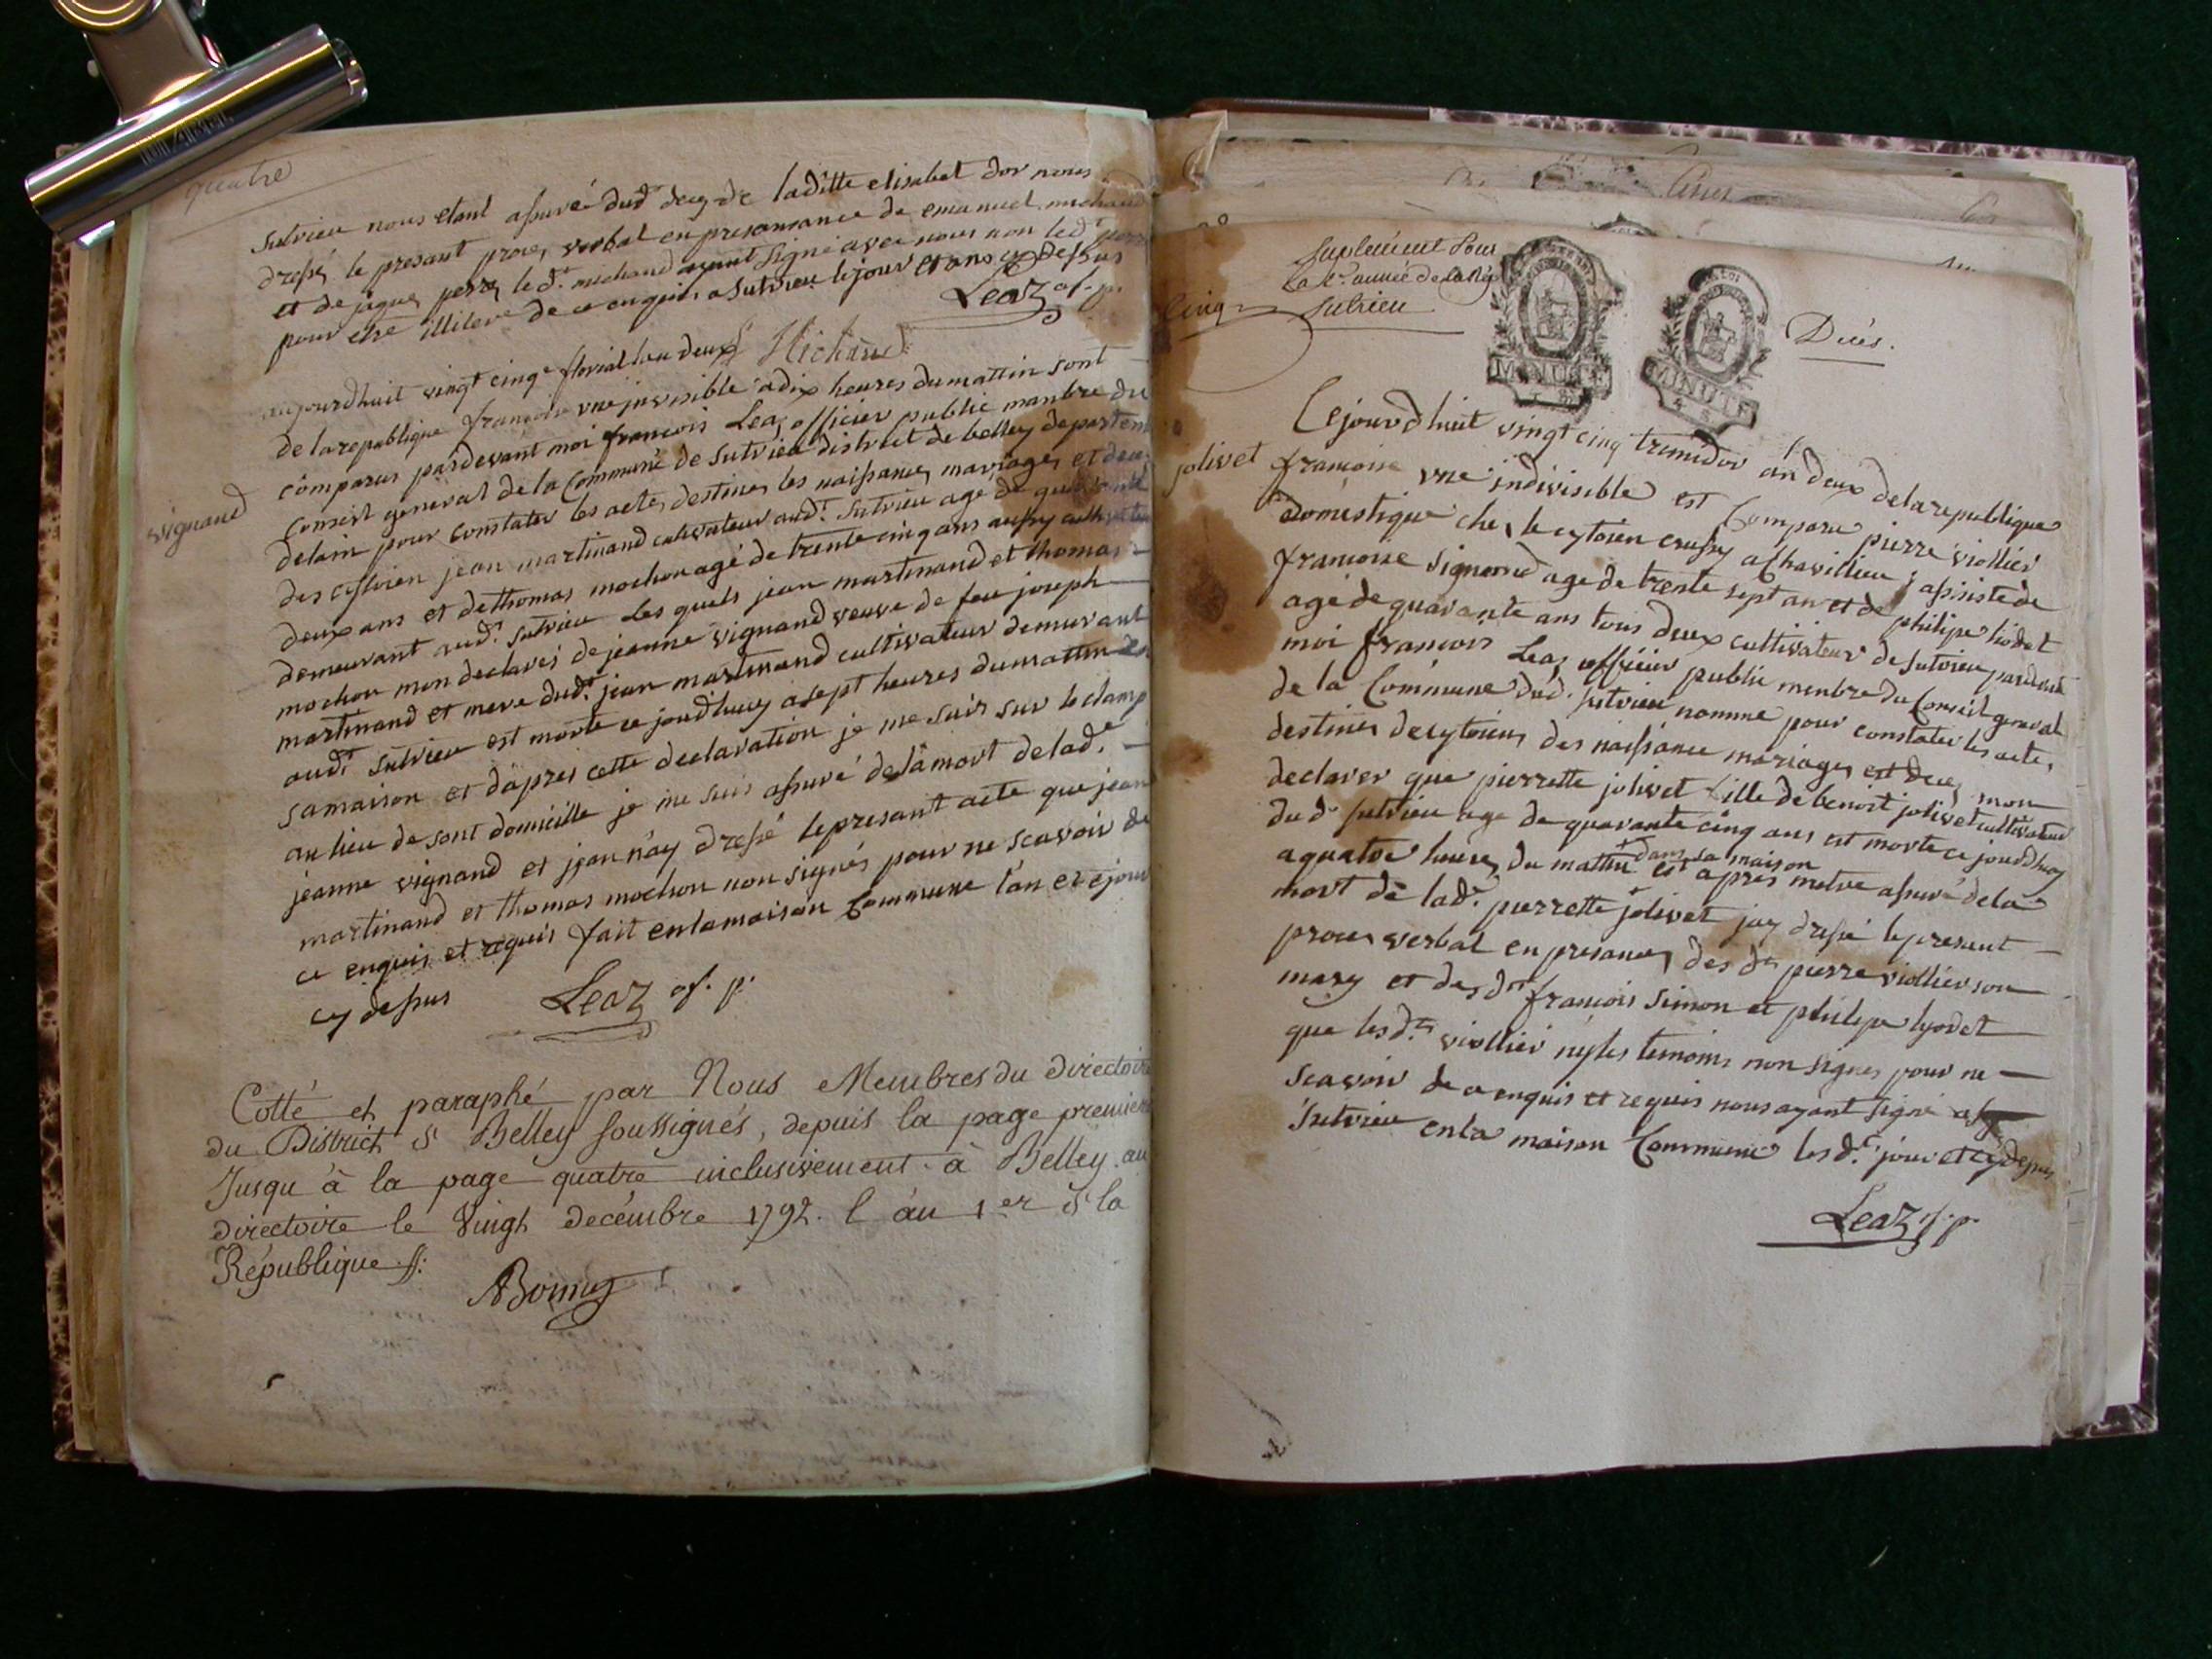 quatre
Sutrieu nous etant assuré dud. decq de laditte elisabet dor nous
dressé le presant proces verbal en presansance de emanuel michaud
et de jaques perra led.t michaud ayant signé avec nous non led.t
pour etre illilere de ce enquis a Sutrieu le jour et ans cy dessus
Leaz of. p.
Michaud
aujourdhuit vingt cinqe florial lan deux
de la republique francoise une jnvisible a dix heures du mattin sont
comparus pardevant moi francois Leaz officier public manbre du
Conseil general de la Commune de Sutrieu district de belley departem
delain pour constater les actes destines les naissances mariages et deces
vignand
des cistoien jean martinand cultivateur aud.t Sutrieu age de quarante
deux ans et de thomas mochon agé de trente cinq ans aussy cultivateur
demeurant aud.t Sutrieu Les quels jean martinand et thomas
mochon mon declarés de jeanne vignand veuve de feu joseph
martinand et mere dud.t jean martinand cultivateur demurant
aud.t Sutrieu est morte ce jourdhuy a sept heures du mattin
sa maison et dapres cette declaration je me suis sur le clamp
au lieu de sont domicille je me suis assuré de la mort de lad.e
jeanne vignand et jean náy dressé le presant acte que jean
martinand et thomas mochon non signés pour ne scavoir de
ce enquis et requis fait en la maison Commune l'an et ejour
cy dessus
Leaz of. p.
Cotté et paraphé par Nous Membres du directoire
du District d Belley soussignés, depuis la page premiere
Jusqu'à la page quatre inclusivement. à Belley au
directoire le Vingt decémbre 1792. l'an 1.er d la
République f:
Cinq
Suplement Pour
La 1.re année de la Rép
Sutrieu
cinq
MINUTE
MINUTE
Décés.
jolivet
Cejourdhuit vingt cinq trmidor an deux de la republique
francoise vne indivisible est Comparu pierre viollier
domestique ches le cytoien crussy a Chavillieu ; assisté de
francoise Simond age de trente sept an et de philipe liodet
agé de quarante ans tous deux cultivateur de Sutrieu pardevant
moi francois Leaz officier public menbre du Conseil general
de la Commune dud. Sutrieu nommé pour constater les actes
destines de cytoiens des naissance mariages est deces mon
declarer que pierrette jolivet fille de benoit jolivet cultivateur
du d.t Sutrieu age de quarante cinq ans est morte ce jourdhuy
dans sa maison
a quatre heures du mattin et apres metre assuré de la
mort de lad.e pierrette jolivet jay dressé le present
proces verbal en presances des d.ts pierre viollier son
mary et des d.ts francois Simon et philipe lyodet
que les d.ts viollier nÿ les temoins non signes pour ne
scavoir de ce enquis et requis nous ayant signé
Sutrieu en la maison Commune les d.ts jour et cy dessus
Leaz of. p.